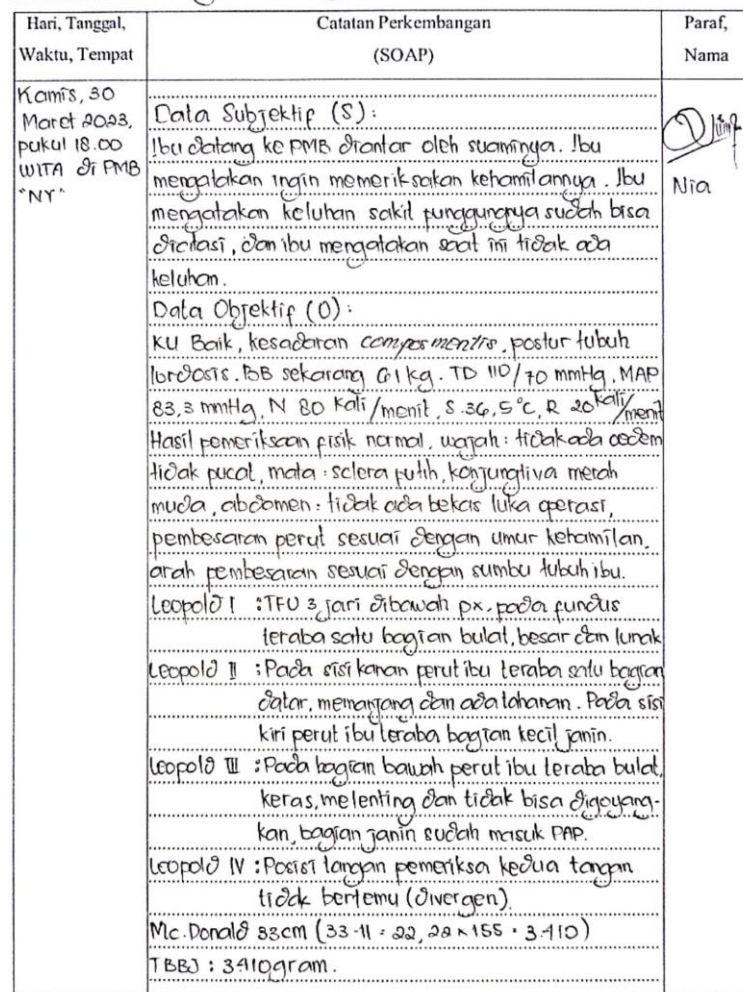 Hari, Tanggal,
Waktu, Tempat
Catatan Perkembangan
(SOAP)
Paraf,
Nama
Kamis, 30
Maret 2023,
pukul 18.00
WITA di PMB
"NY"
Data Subjektif (S) :
Ibu datang ke PMB diantar oleh suaminya. Ibu
mengatakan ingin memeriksakan kehamilannya. Ibu
mengatakan keluhan sakit punggungnya sudah bisa
diatasi, dan ibu mengatakan saat ini tidak ada
keluhan.
Data Objektif (O) :
KU Baik, kesadaran composmentis, postur tubuh
lordosis. BB sekarang 61 kg. TD 110/70 mmHg. MAP
83,3 mmHg, N 80 kali/menit, S.36,5°C, R 20 kali/menit
Hasil pemeriksaan fisik normal, wajah : tidak ada oedem
tidak pucat, mata : sclera putih, konjungtiva merah
muda, abdomen : tidak ada bekas luka operasi,
pembesaran perut sesuai dengan umur kehamilan,
arah pembesaran sesuai dengan sumbu tubuh ibu.
Leopold I : TFU 3 jari dibawah px, pada fundus
teraba satu bagian bulat, besar dan lunak
Leopold II : Pada sisi kanan perut ibu teraba satu bagian
datar, memanjang dan ada tahanan. Pada sisi
kiri perut ibu teraba bagian kecil janin.
Leopold III : Pada bagian bawah perut ibu teraba bulat,
keras, melenting dan tidak bisa digoyang-
kan, bagian janin sudah masuk PAP.
Leopold IV : Posisi tangan pemeriksa kedua tangan
tidak bertemu (divergen).
Mc.Donald 33cm (33-11 = 22, 22 x 155 = 3.410)
TBBJ : 3410gram.
Nia